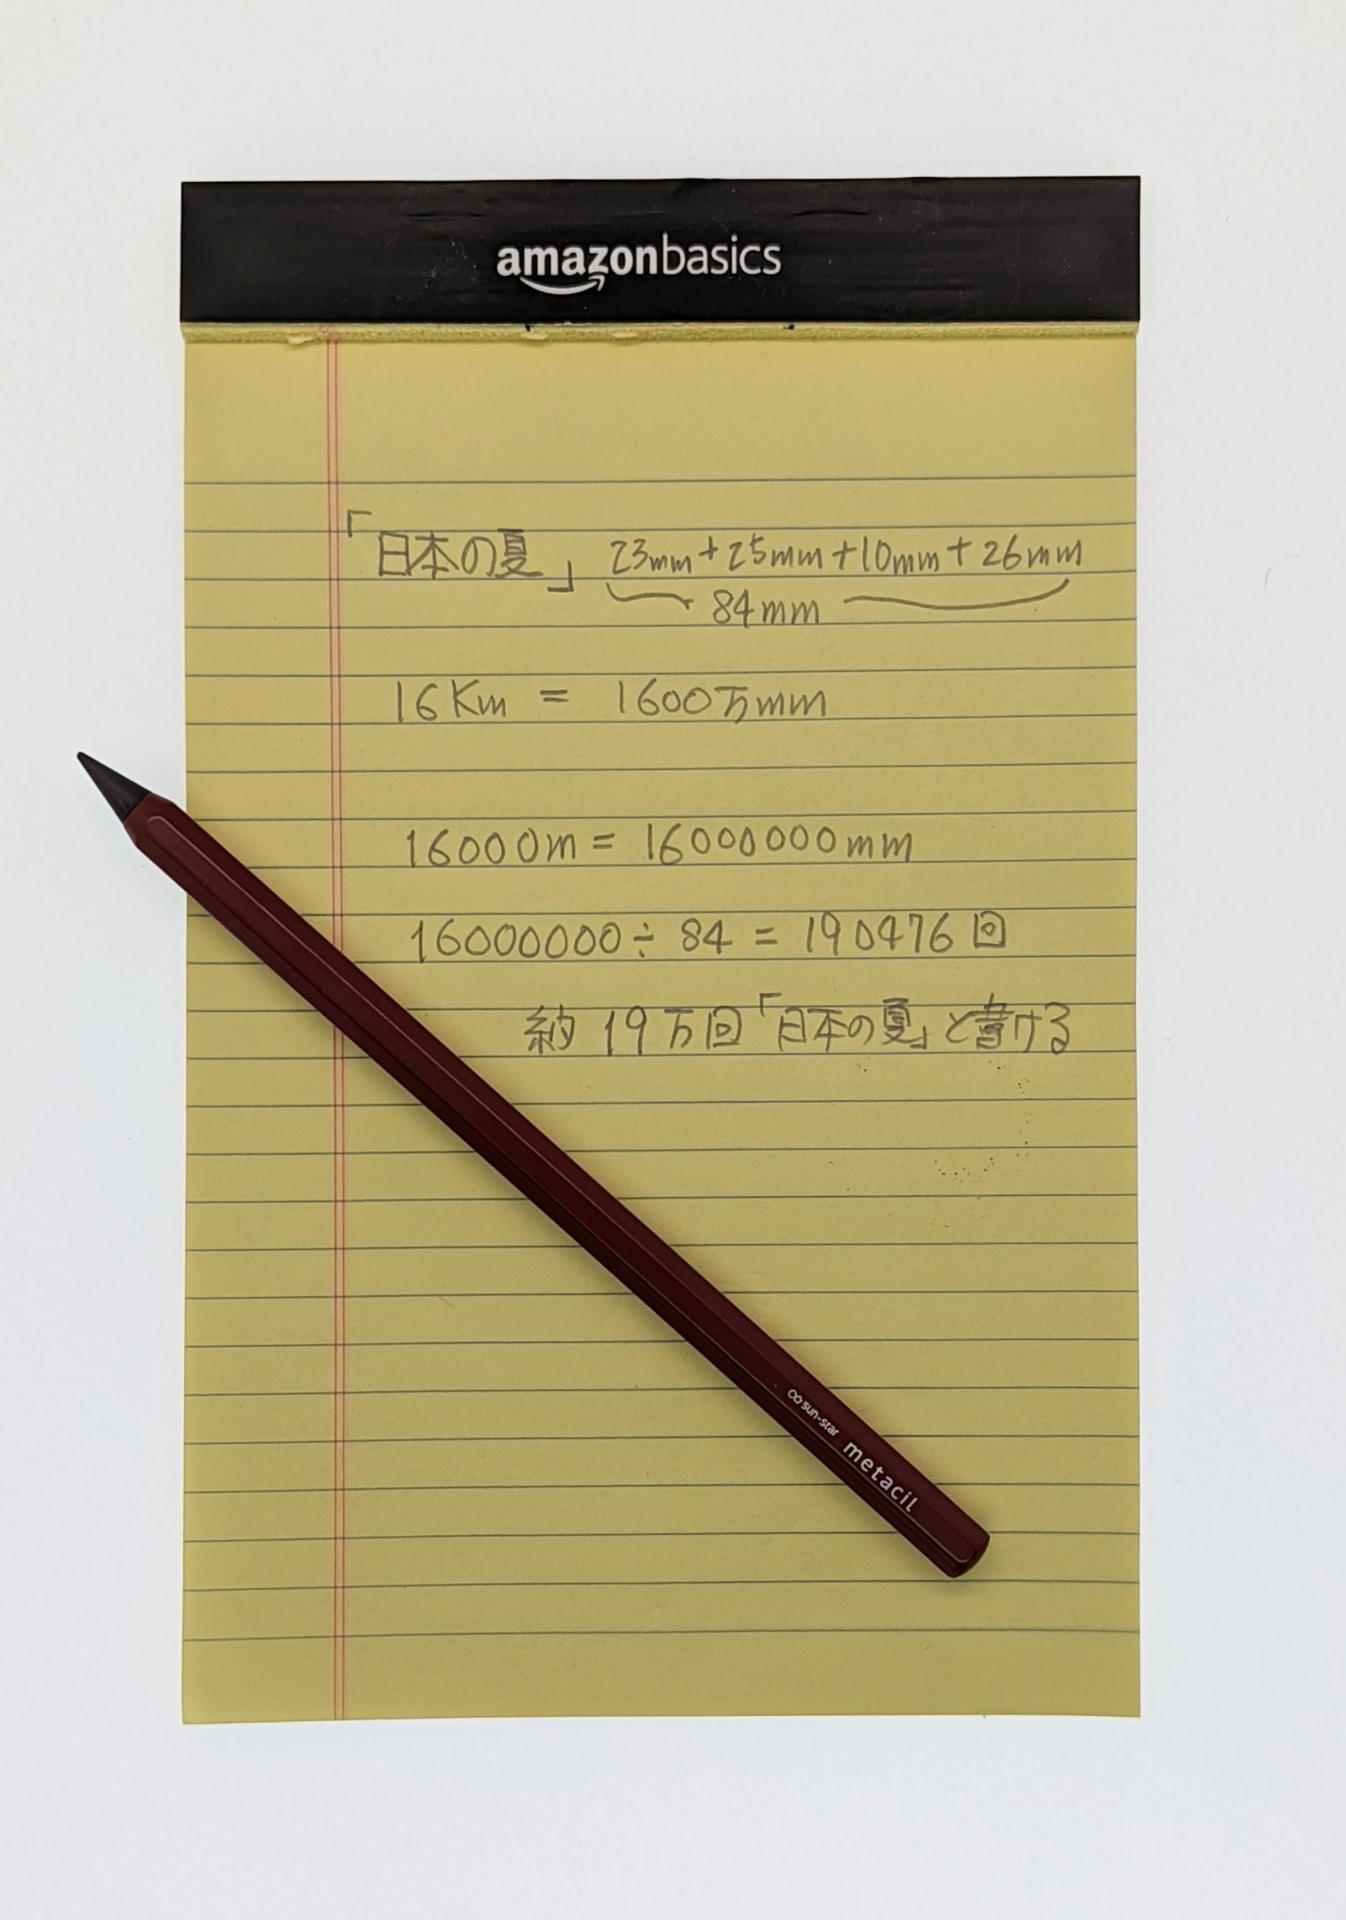 amazonbasics
「日本の夏」 23mm+25mm+10mm+26mm
84mm
16Km = 1600万mm
16000m = 16000000mm
16000000÷84 = 190476回
約19万回「日本の夏」と書ける
sun-star metacil